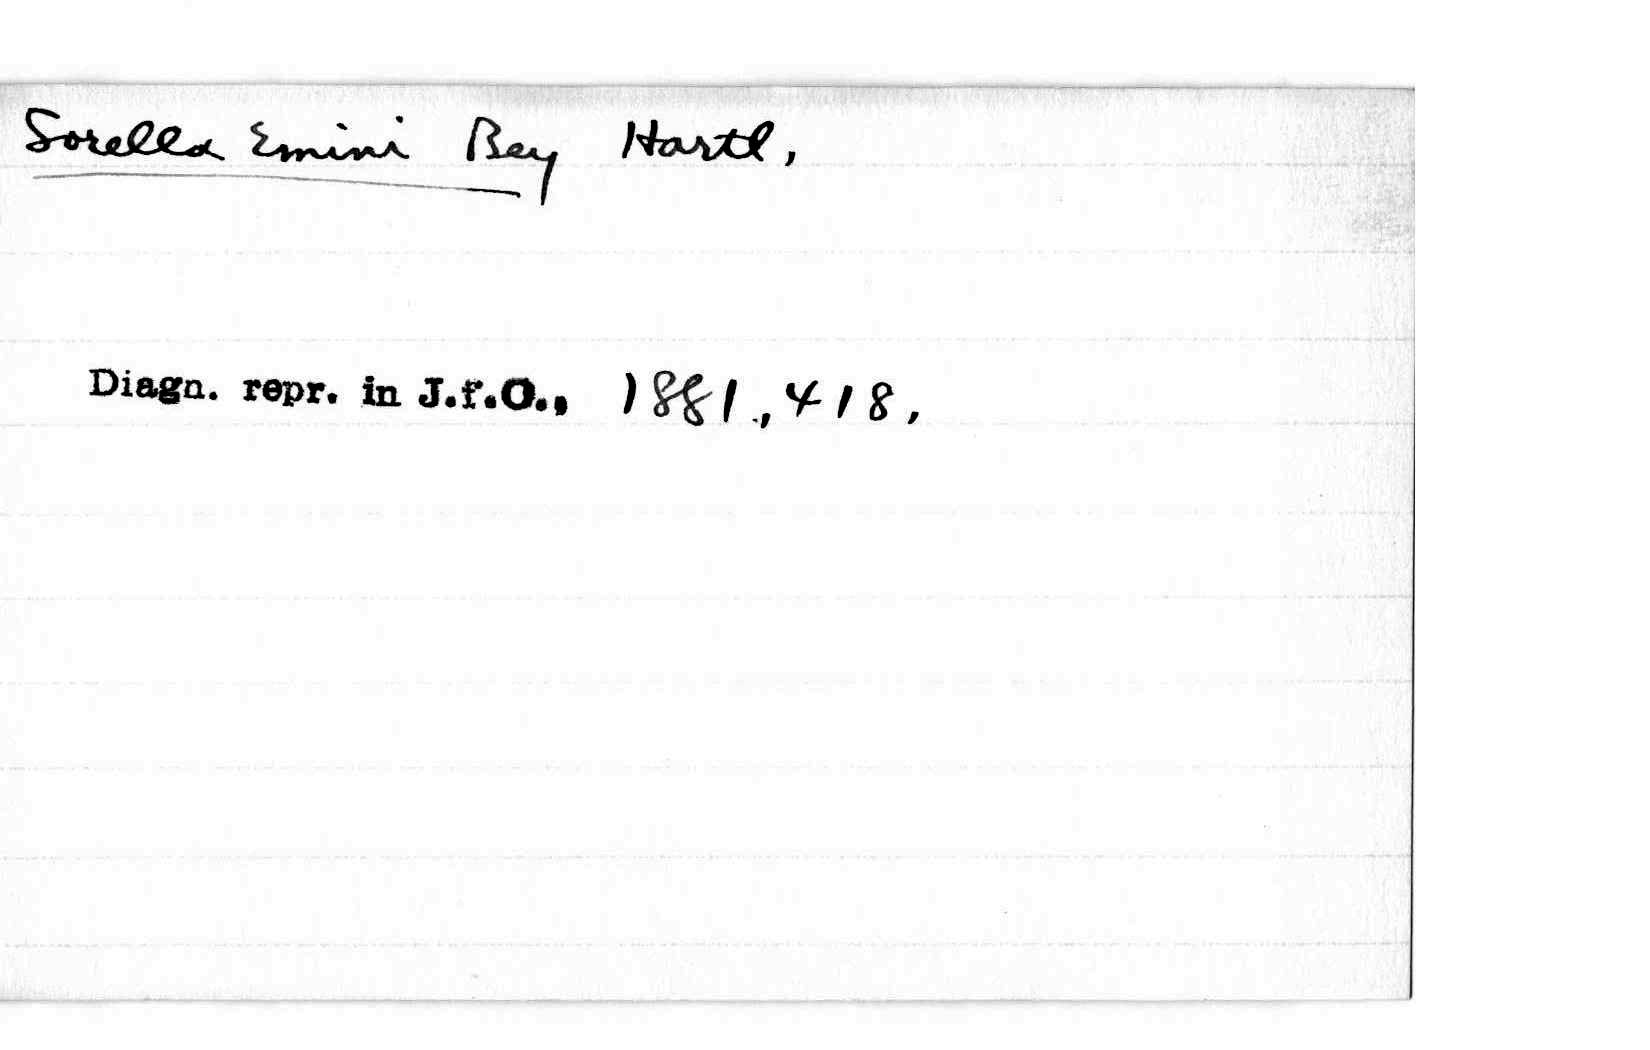 Sorella Emini Bey Hartl,
Diagn. repr. in J.f.O., 1881., 418,